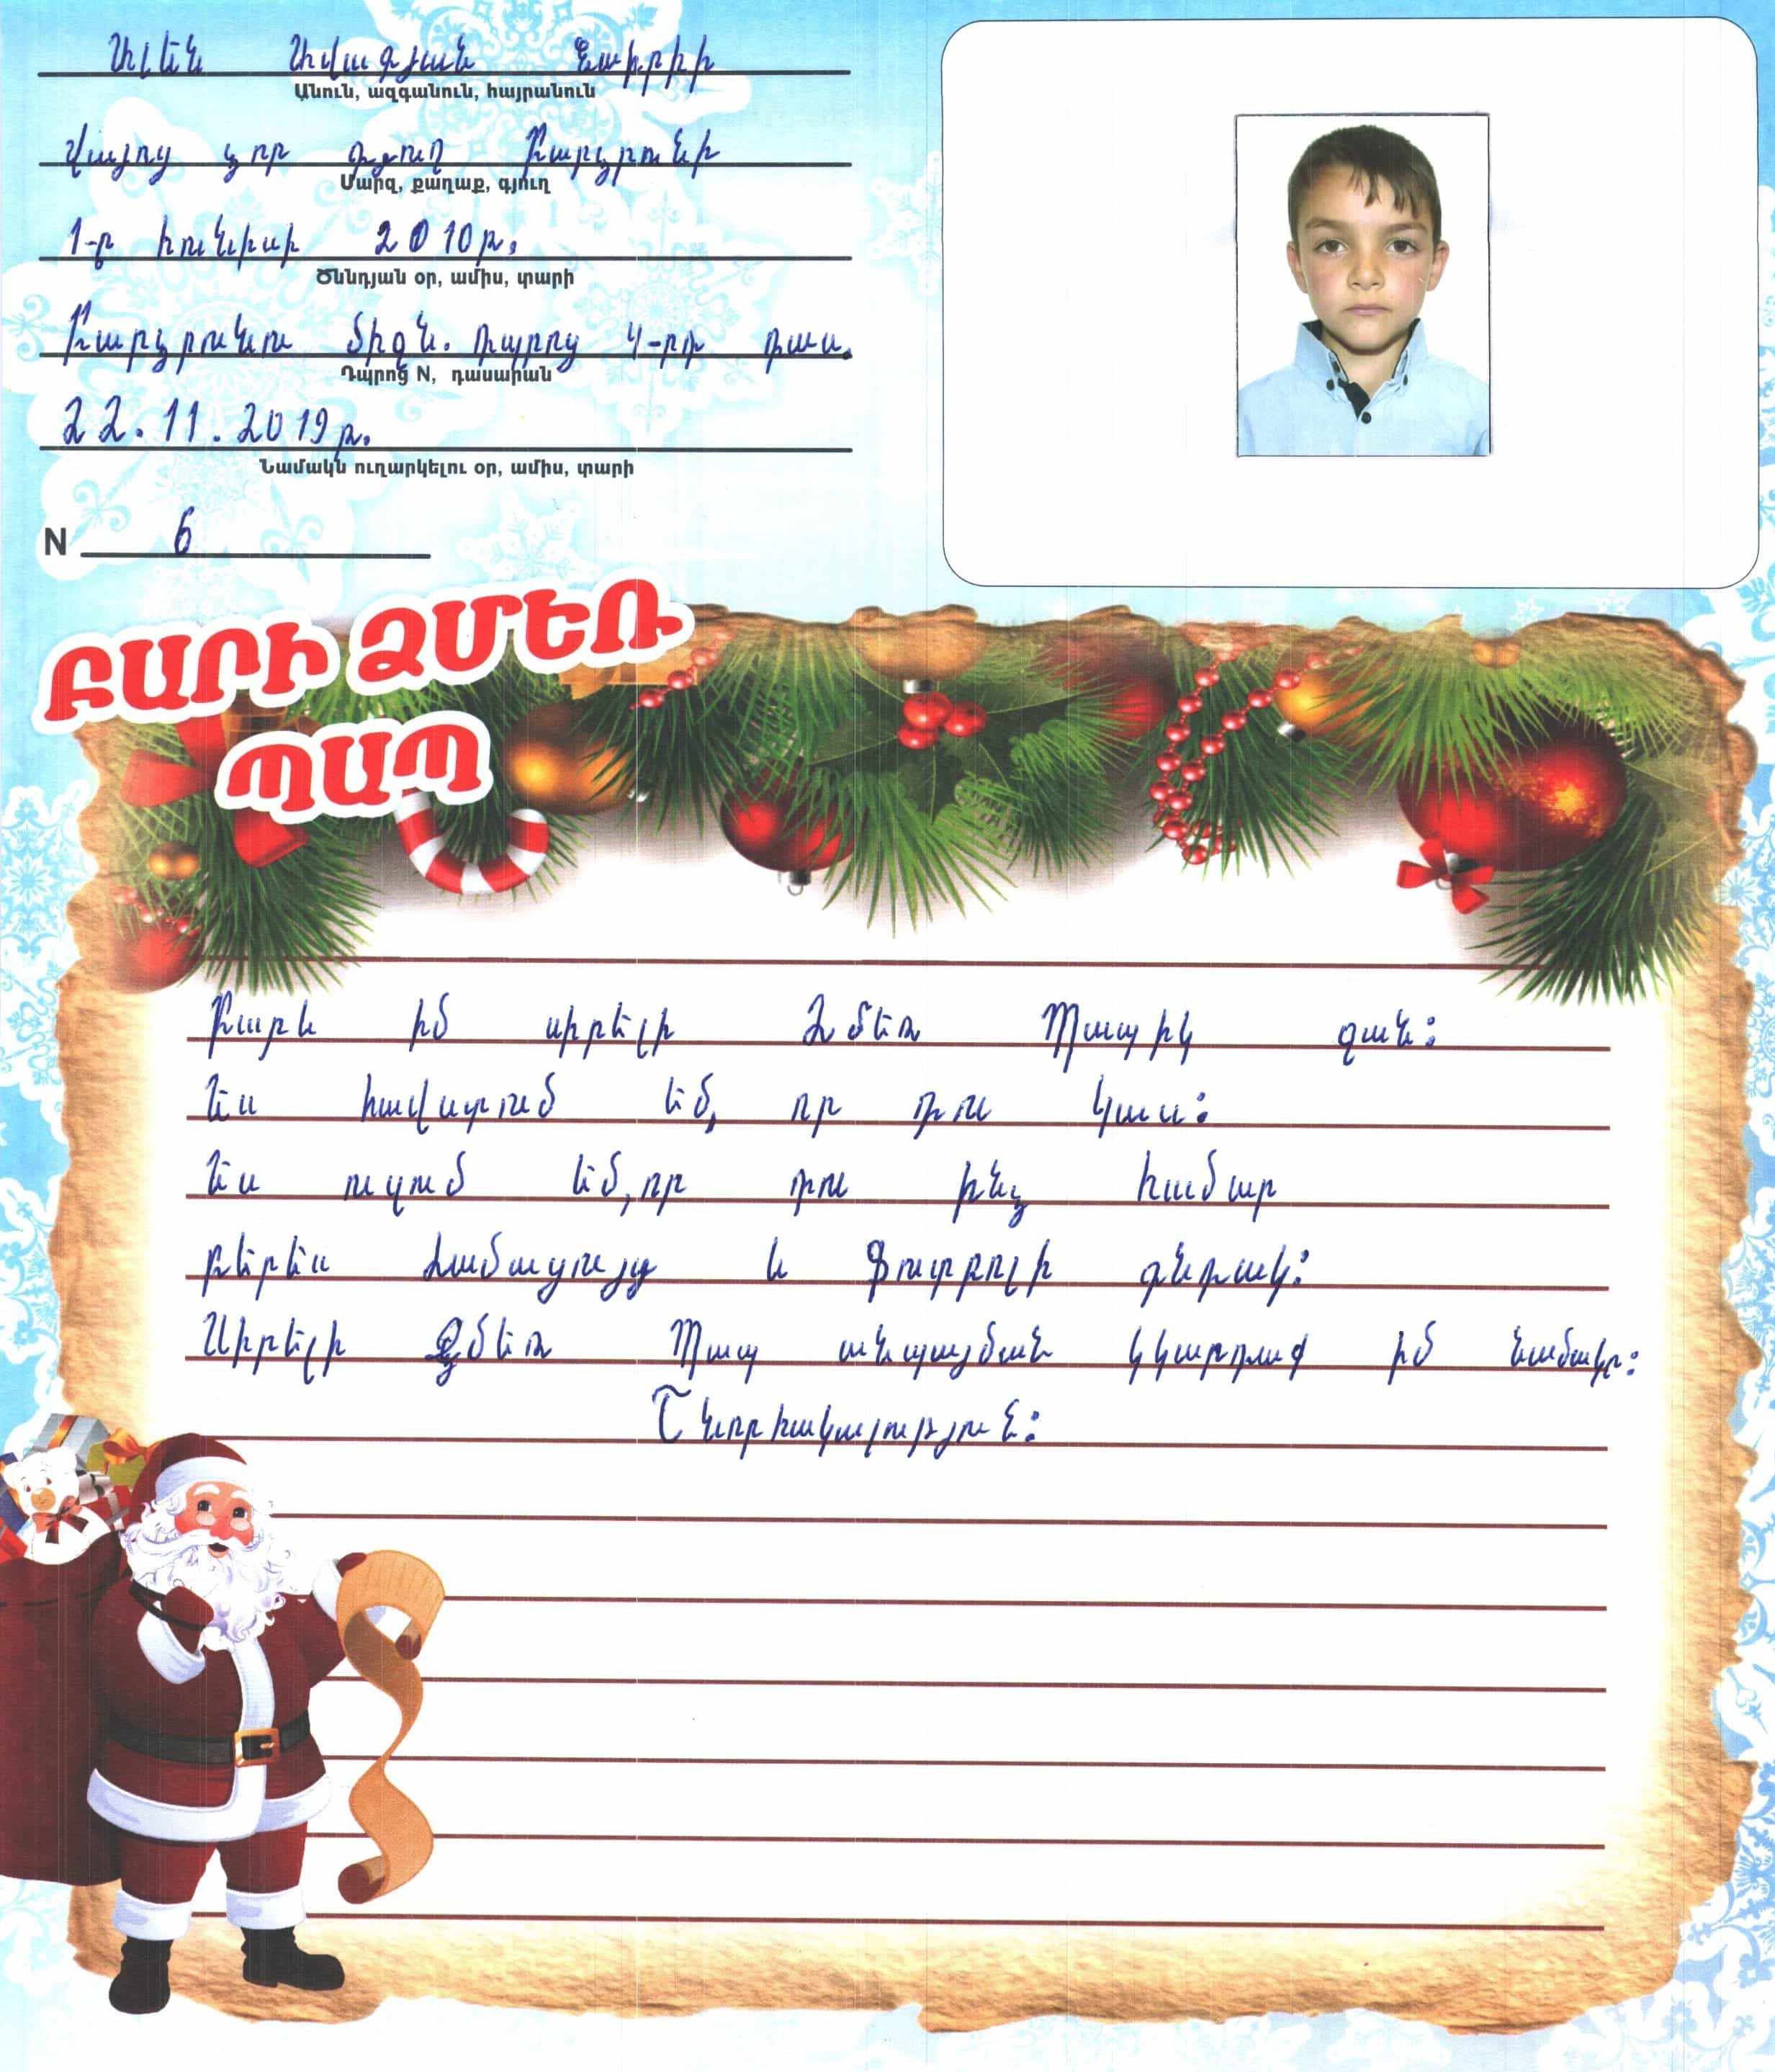 Ալեն Ավագյան Նաիրիի
Անուն, ազգանուն, հայրանուն
Վայոց ձոր գյուղ Բարձրունի
Մարզ, քաղաք, գյուղ
1-ը հունիսի 2010թ.
Ծննդյան օր, ամիս, տարի
Բարձրունու միջն. դպրոց 4-րդ դաս.
Դպրոց N, դասարան
22.11.2019թ.
Նամակն ուղարկելու օր, ամիս, տարի
N 6
ԲԱՐԻ ՁՄԵՌ
ՊԱՊ
Բարև իմ սիրելի Ձմեռ Պապիկ ջան:
Ես հավատում եմ, որ դու կաս:
Ես ուզում եմ, որ դու ինձ համար
բերես համացույց և ֆուտբոլի գնդակ:
Սիրելի Ձմեռ Պապ անպայման կկարդաս իմ նամակը:
Շնորհակալություն: